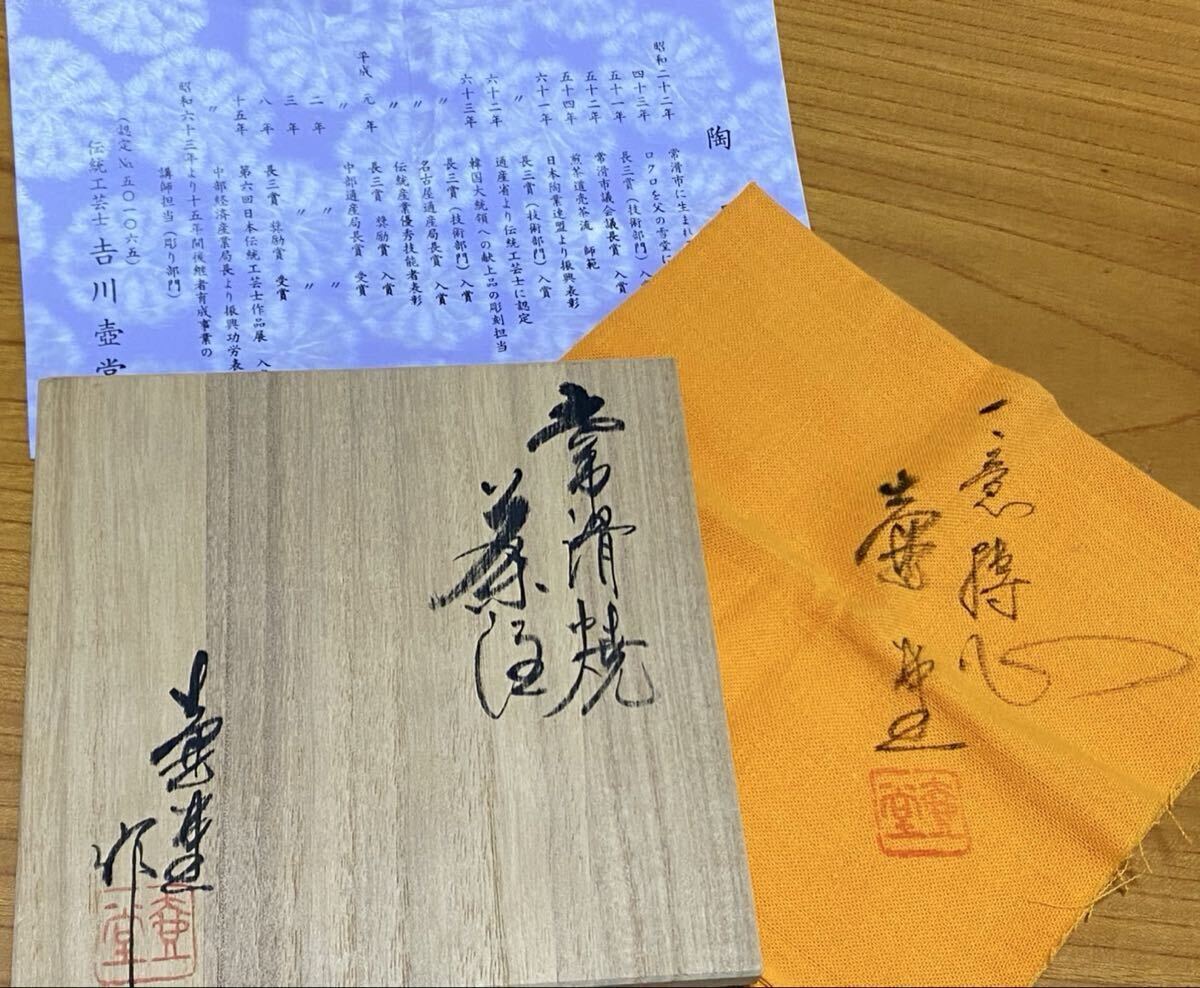 陶
昭和二十二年 常滑市に生まれ
四十三年 ロクロを父の雪堂に
五十一年 長三賞(技術部門)入賞
五十二年 常滑市議会議長賞 入賞
五十四年 煎茶道売茶流 師範
六十一年 日本陶業連盟より振興表彰
〃 長三賞(技術部門)入賞
六十二年 通産省より伝統工芸士に認定
六十三年 韓国大統領への献上品の彫刻担当
〃 長三賞(技術部門)入賞
〃 名古屋通産局長賞 入賞
〃 伝統産業優秀技能者表彰
平成 元年 長三賞 奨励賞 入賞
〃 中部通産局長賞 受賞
二年 〃 〃
三年 〃 〃
八年 長三賞 奨励賞 受賞
十五年 第六回日本伝統工芸士作品展 入
〃 中部経済産業局長より振興功労表
昭和六十三年より十五年間後継者育成事業の
講師担当(彫り部門)
(認定№五〇一〇六五)
伝統工芸士 吉川壺堂
常滑焼
茶注
壺堂
作
壺堂
壺堂
壺堂